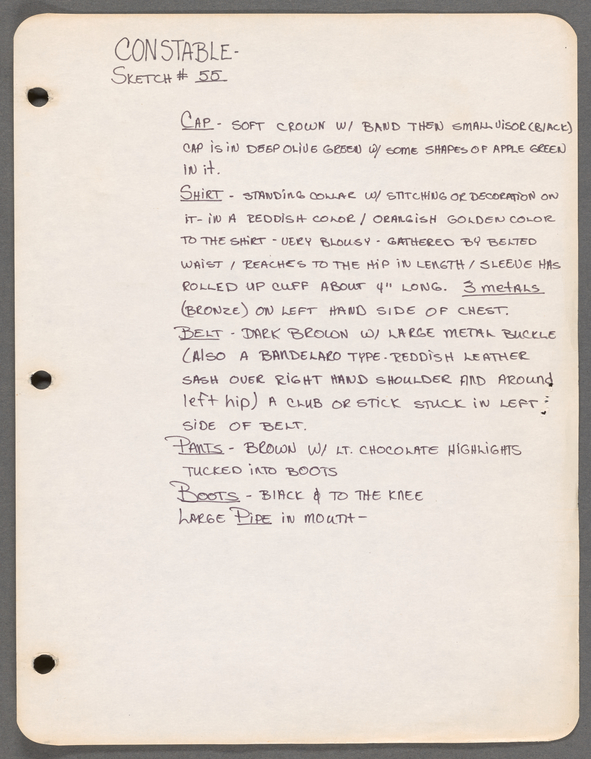 CONSTABLE-
SKETCH # 55
CAP - SOFT CROWN W/ BAND THEN SMALL VISOR (BLACK)
CAP IS IN DEEP OLIVE GREEN W/ SOME SHAPES OF APPLE GREEN
IN it.
SHIRT - STANDING COLLAR W/ STITCHING OR DECORATION ON
IT- IN A REDDISH COLOR / ORANGISH GOLDEN COLOR
TO THE SHIRT - VERY BLOUSY - GATHERED BY BELTED
WAIST / REACHES TO THE HIP IN LENGTH / SLEEVE HAS
ROLLED UP CUFF ABOUT 4" LONG. 3 metals
(BRONZE) ON LEFT HAND SIDE OF CHEST.
BELT - DARK BROWN W/ LARGE METAL BUCKLE
(ALSO A BANDELARO TYPE - REDDISH LEATHER
SASH OVER RIGHT HAND SHOULDER AND AROUND
left hip) A CLUB OR STICK STUCK IN LEFT
SIDE OF BELT.
PANTS - BROWN W/ LT. CHOCOLATE HIGHLIGHTS
TUCKED INTO BOOTS
BOOTS - BLACK & TO THE KNEE
LARGE PIPE IN MOUTH-